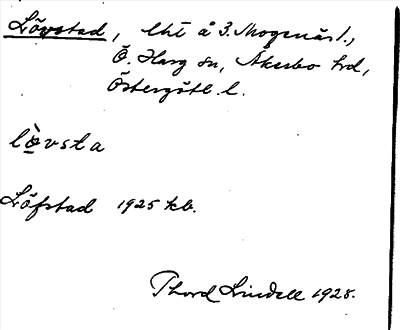 Lövstad, lht å 3. Mogenäs l.,
Ö. Harg sn, Åkerbo hd,
Östergötl. l.
lö̀vsta
Löfstad 1925 kb.
Thord Lindell 1928.